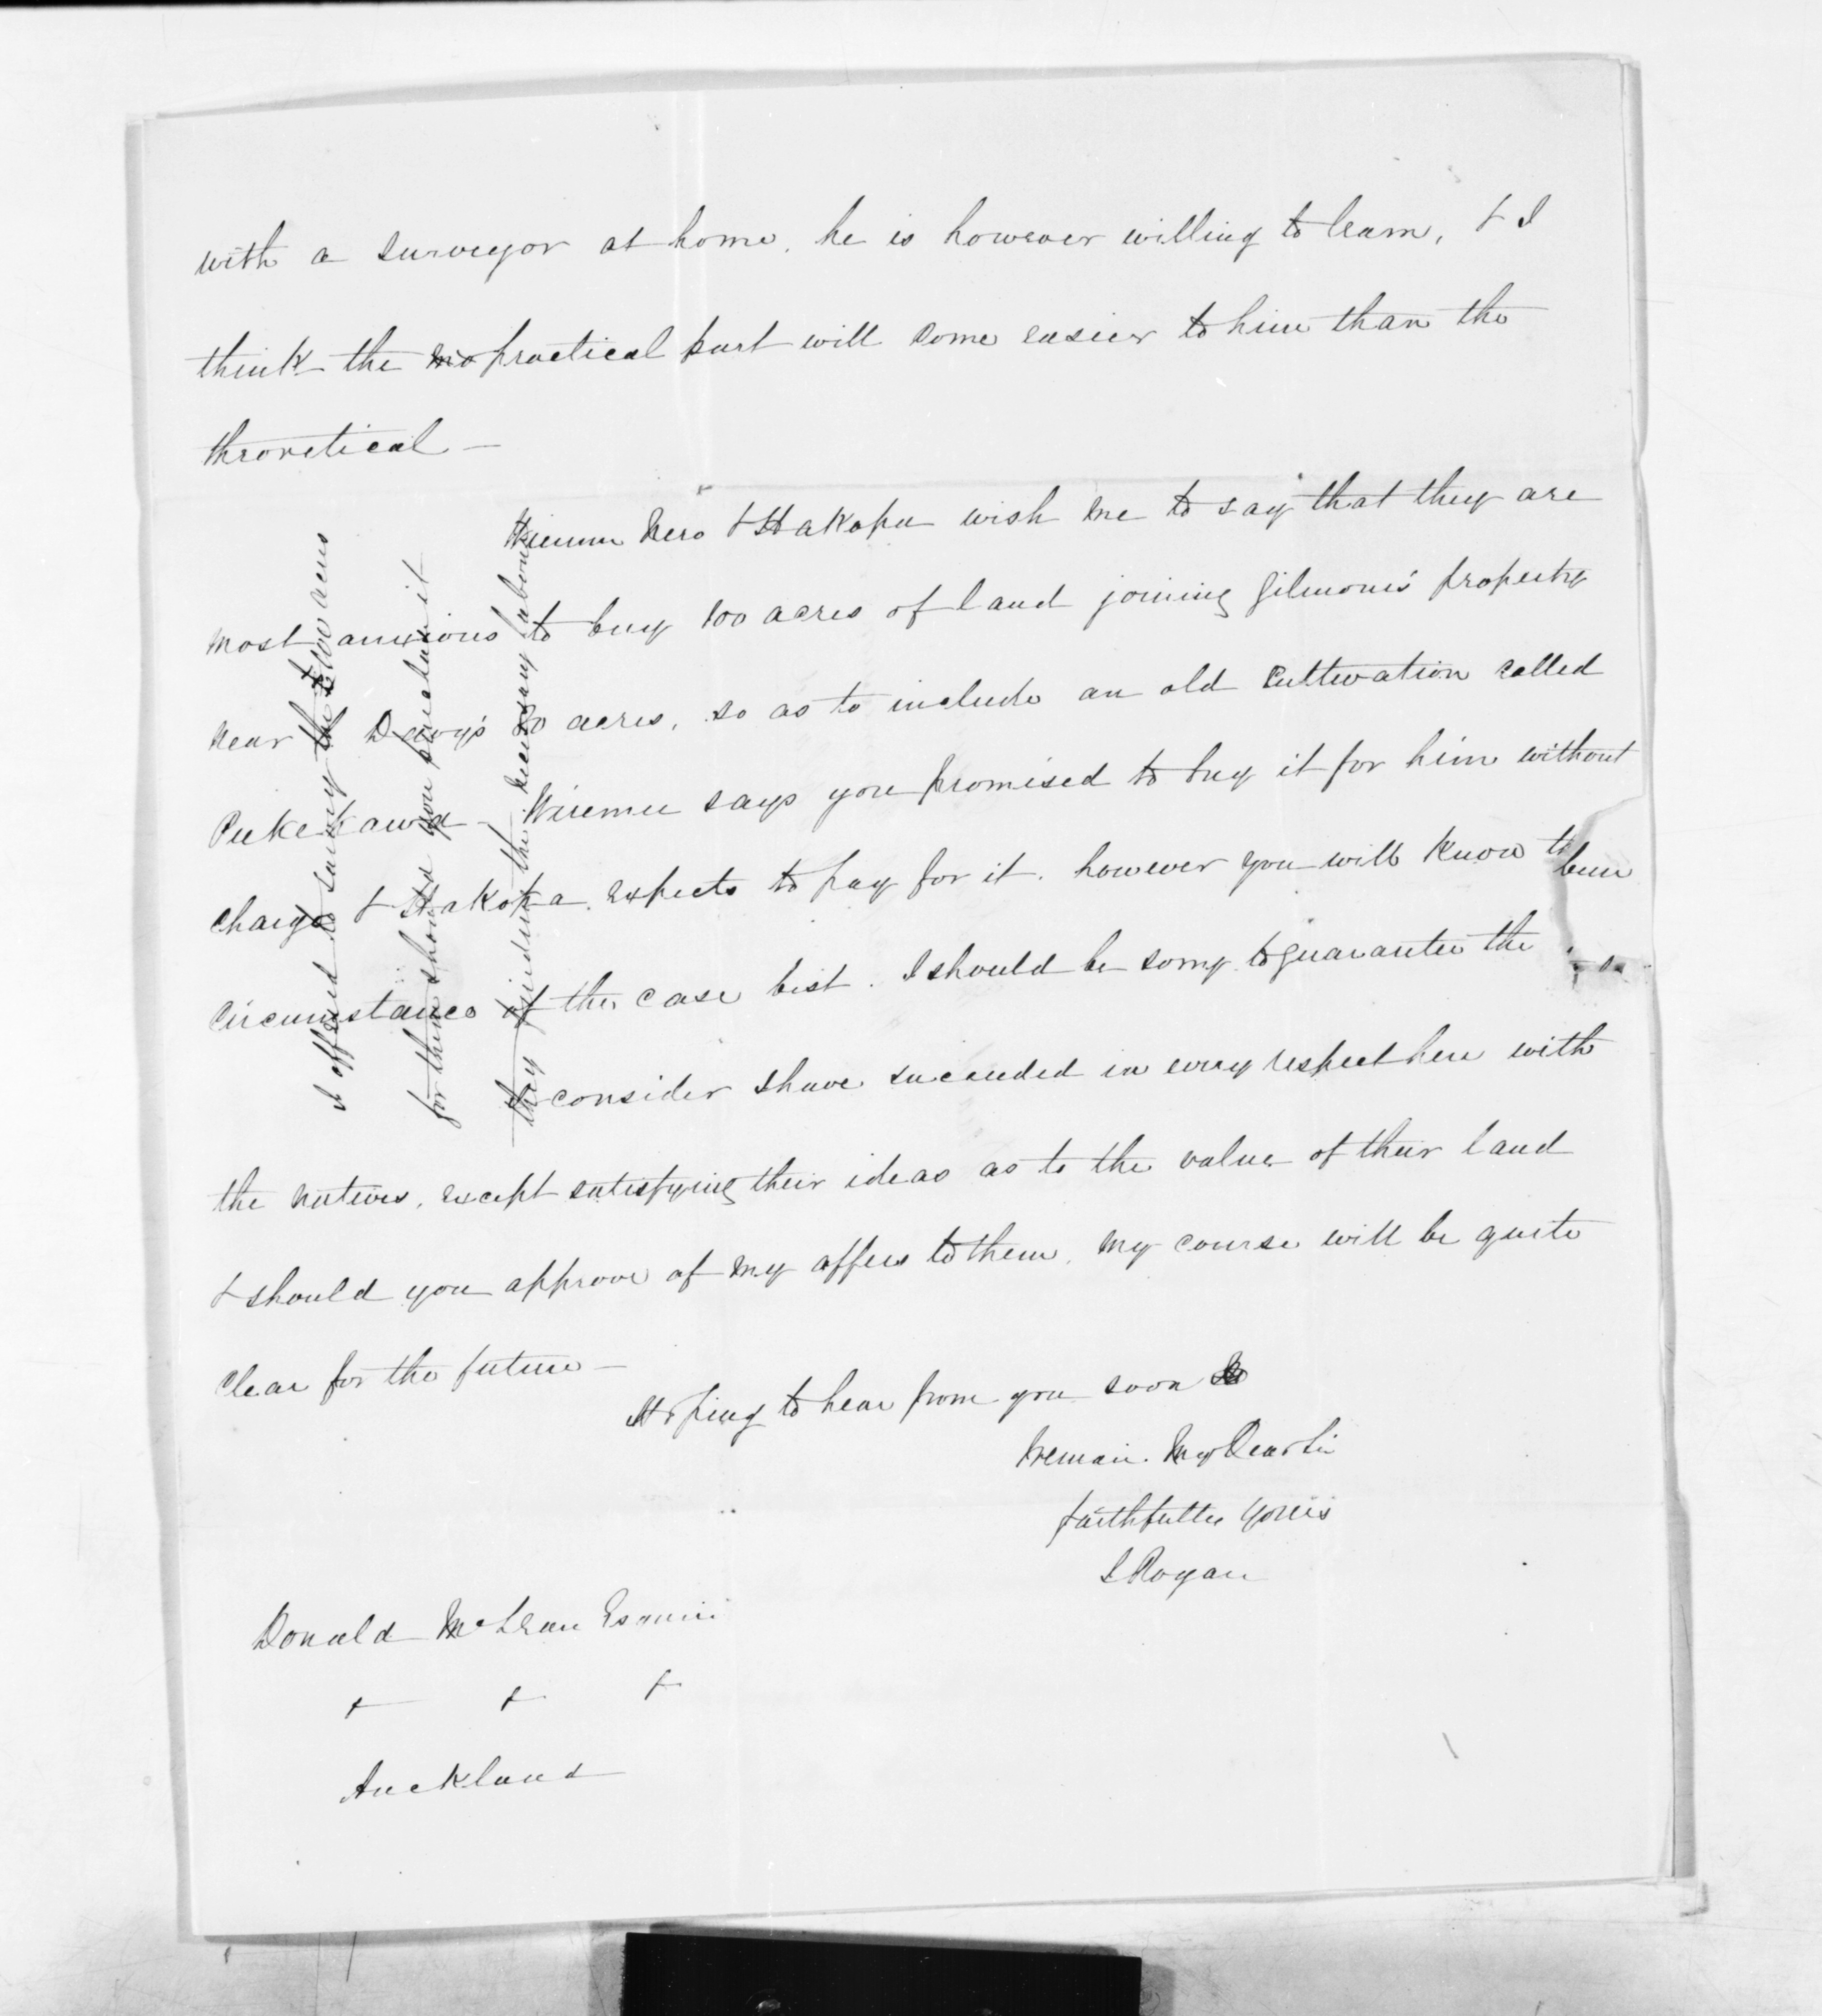 with a surveyor at home. he is however willing to learn, & I
think the practical part will come easier to him than the
theoretical —
Wiremu Nero & Hakopa wish me to say that they are
most anxious to buy 100 acres of land joining Gilmour's property
near Davy's 80 acres, so as to include an old cultivation called
Pukekawa — Wiremu says you promised to buy it for him without
charge & Hakopa expects to pay for it. however you will know the
circumstances of the case best. I should be sorry to guarantee the
I consider I have succeeded in every respect here with
the natives, except satisfying their ideas as to the value of their land
& should you approve of my offers to them, my course will be quite
clear for the future —
Hoping to hear from you soon
I remain. My Dear Sir
faithfully yours
J Rogan
Donald McLean Esquire
Auckland
I offered to survey the 100 acres
for them should you purchase it
they finding the necessary labour